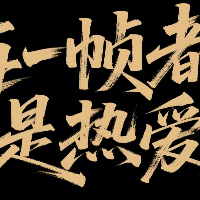 每一帧者
是热爱